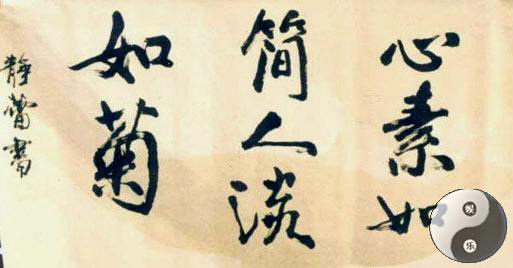 心素如
简人淡
如菊
静蕾书
娱
乐